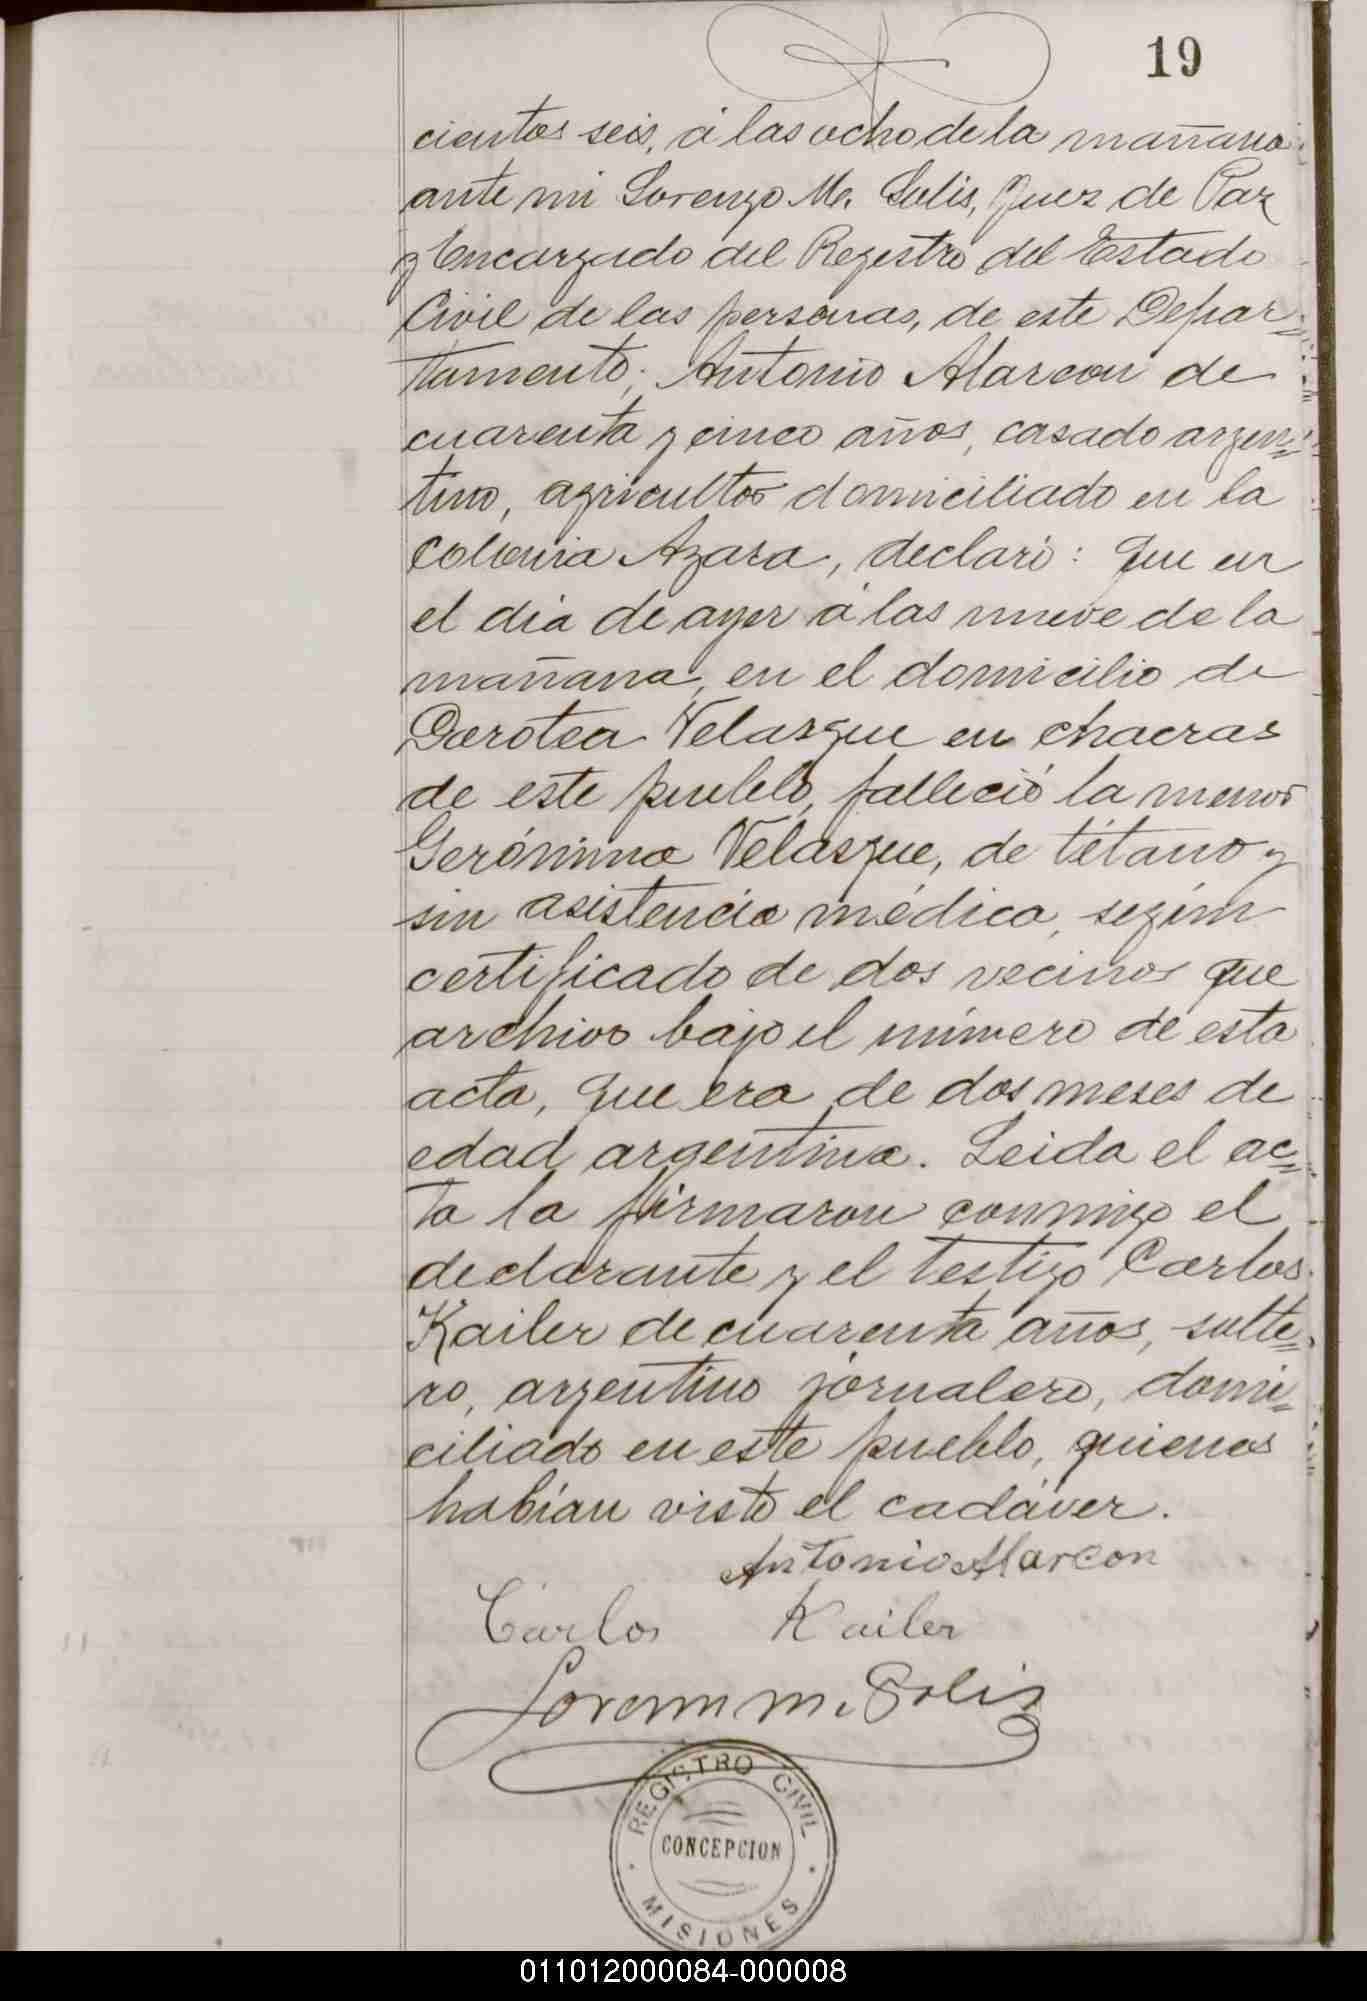 19
cientos seis, á las ocho de la mañana
ante mi Lorenzo M. Solis, Juez de Paz
y Encargado del Registro del Estado
Civil de las personas, de este Depar=
tamento, Antonio Alarcon de
cuarenta y cinco años, casado argen=
tino, agricultor domiciliado en la
Colonia Azara, declaró: Que en
el dia de ayer á las nueve de la
mañana, en el domicilio de
Dorotea Velasque en chacras
de este pueblo, falleció la menor
Gerónima Velasque, de tétano y
sin asistencia médica, según
certificado de dos vecinos que
archivo bajo el número de esta
acta, que era de dos meses de
edad argentina. Leida el ac=
ta la firmaron conmigo el
declarante y el testigo Carlos
Kailer de cuarenta años, solte=
ro, argentino jornalero, domi=
ciliado en este pueblo, quienes
habían visto el cadáver.
Antonio Alarcon
Carlos Kailer
Lorenzo M. Solis
REGISTRO CIVIL
CONCEPCION
MISIONES
011012000084-000008